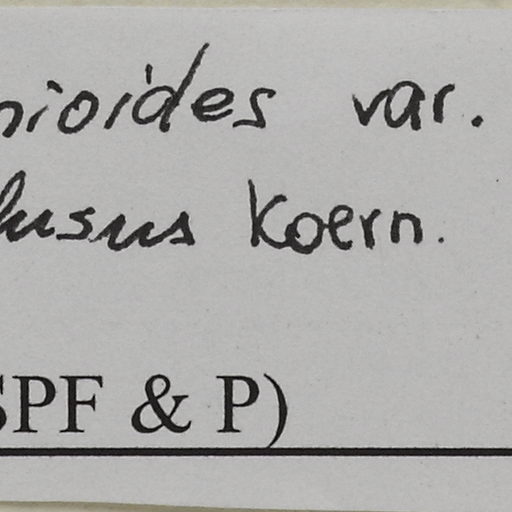 nioides var.
lusus Koern.
SPF & P)